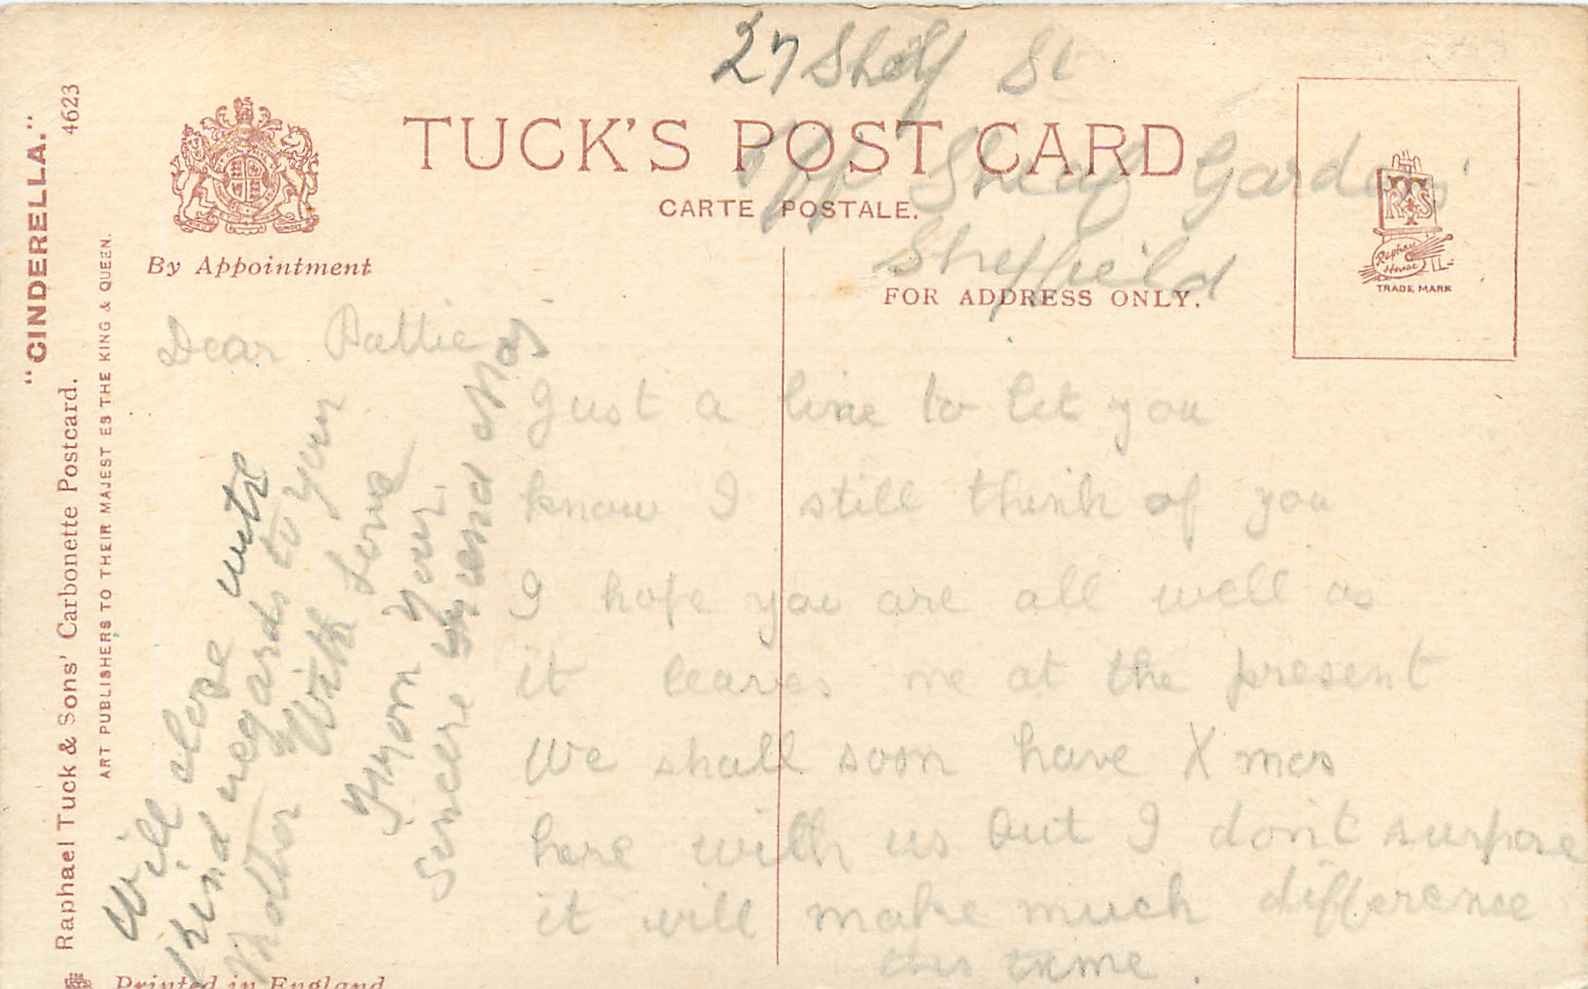 27 Shelf St
off Sheaf Gardens
Sheffield
TUCK'S POST CARD
CARTE POSTALE.
FOR ADDRESS ONLY.
By Appointment
TRADE MARK
Raphael House
"CINDERELLA."
4623
Raphael Tuck & Sons' Carbonette Postcard.
ART PUBLISHERS TO THEIR MAJESTIES THE KING & QUEEN.
Printed in England
Dear Pattie
Just a line to let you
know I still think of you
I hope you are all well as
it leaves me at the present
We shall soon have Xmas
here with us but I don't surpose
it will make much difference
this time.
Will close with
kind regards to your
Mother With Love
From Your
Sincere friend